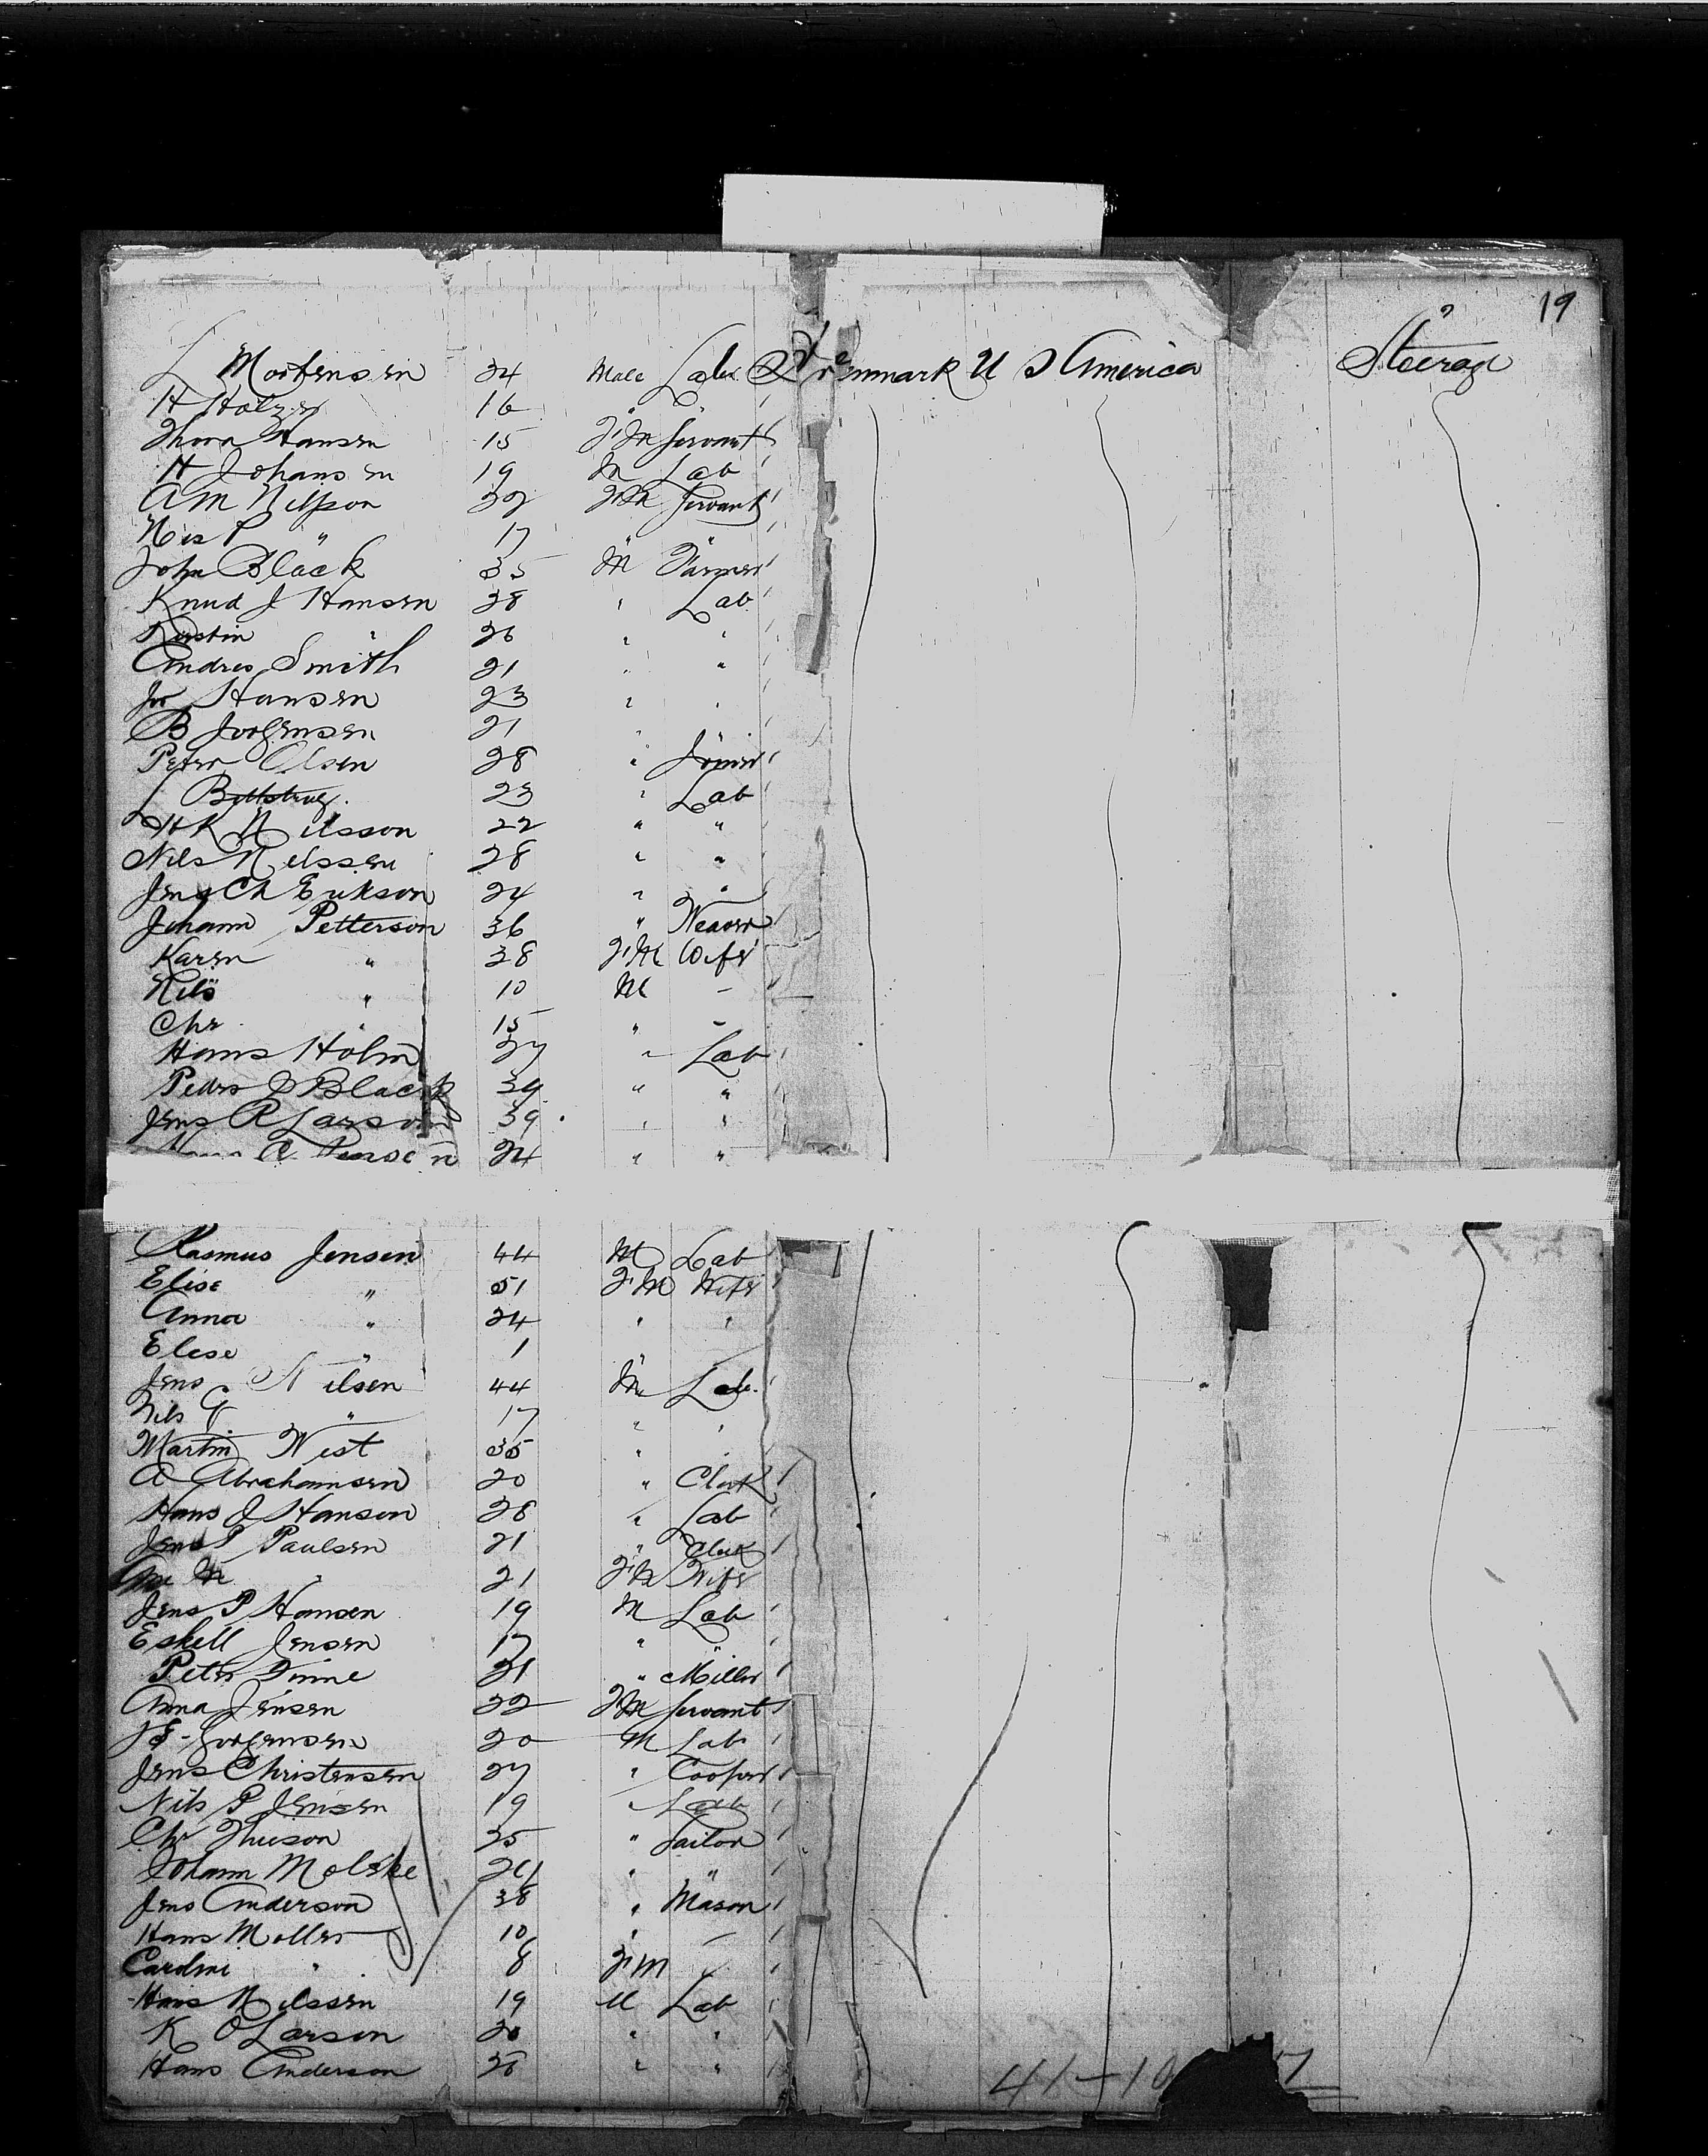 19
L Mortensen 24 Male Lab Denmark U S America Steerage
H Holzer 16 " "
Thora Hansen 15 F'M Servant
H Johansen 19 M Lab
A M Nilsson 32 F'M Servant
Nis P " 17 " "
John Black 35 M Farmer
Knud J Hansen 28 " Lab
Kirstin " 26 " "
Andres Smith 21 " "
Jor Hansen 23 " "
B Jorgensen 21 " "
Peter Olsen 28 " Joiner
L 23 " Lab
H K Nilsson 22 " "
Nils Nelssen 28 " "
Jens Ch Erikson 24 " "
Johann Petterson 36 " Weaver
Karen " 38 F'M Wife
Nils " 10 M -
Chr " 15 " -
Hans Holm 27 " Lab
Peder J Black 34 " "
Jens R Larson 39 " "
24 " "
Rasmus Jensen 44 M Lab
Elise " 51 F'M Wife
Anna " 24 " "
Elese " 1 "
Jens Nilsen 44 M Lab.
Nils G " 17 " "
Martin West 35 " "
A Abrahamsen 20 " Clerk
Hans J Hanson 28 " Lab
Jens P Paulsen 21 " Clerk
Ane M " 21 F'M Wife
Jens P Hansen 19 M Lab
Eskell Jensen 17 " "
Peter Finne 21 " Miller
Anna Jensen 22 F'M Servant
J E Jorgensen 20 M Lab
Jens Christensen 27 " Cooper
Nils P Jensen 19 " Lab
Chr Thuson 35 " Tailor
Johann Molske 24 " "
Jens Anderson 38 " Mason
Hans Moller 10 " -
Caroline " 8 F'M
Hans Nilssen 19 M Lab
K O Larson 20 " "
Hans Anderson 28 " "
41-10 7